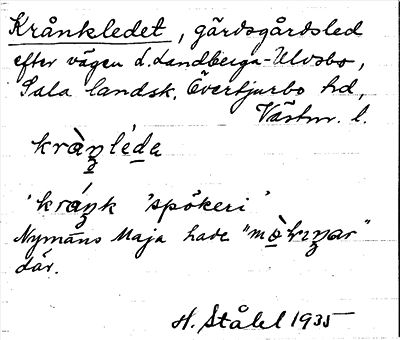 Krånkledet, gärdsgårdsled
efter vägen L. Landberga-Ulvsbo,
Sala landsk. Övertjurbo hd,
Västm. l.
kràŋléde
kráŋk 'spökeri'
Nymans Maja hade "
där.
H. Ståhl 1935